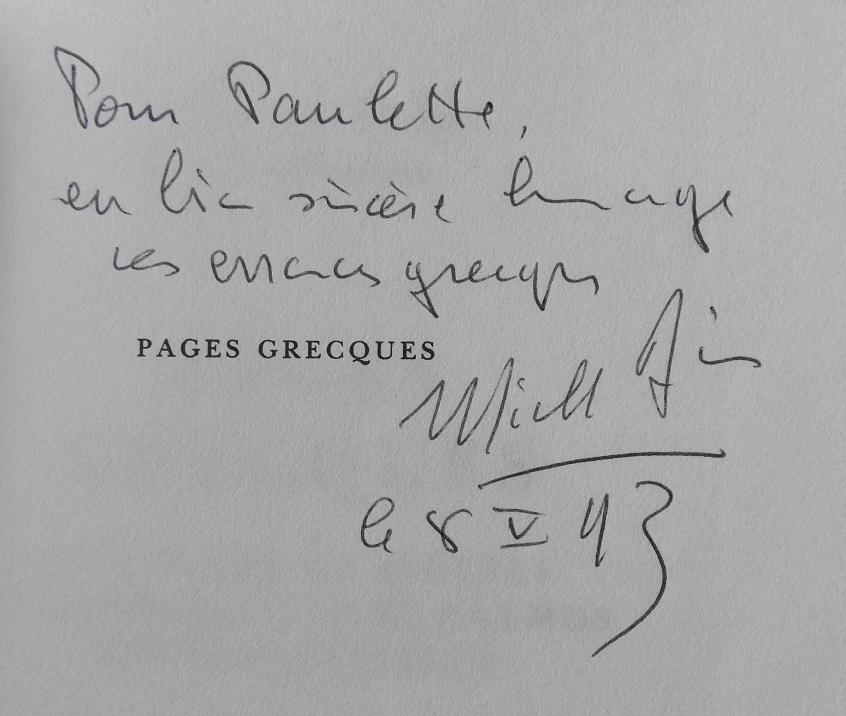 Pour Paulette,
en bien sincère hommage
ces errances grecques
PAGES GRECQUES
Michel Déon
le 8 V 93